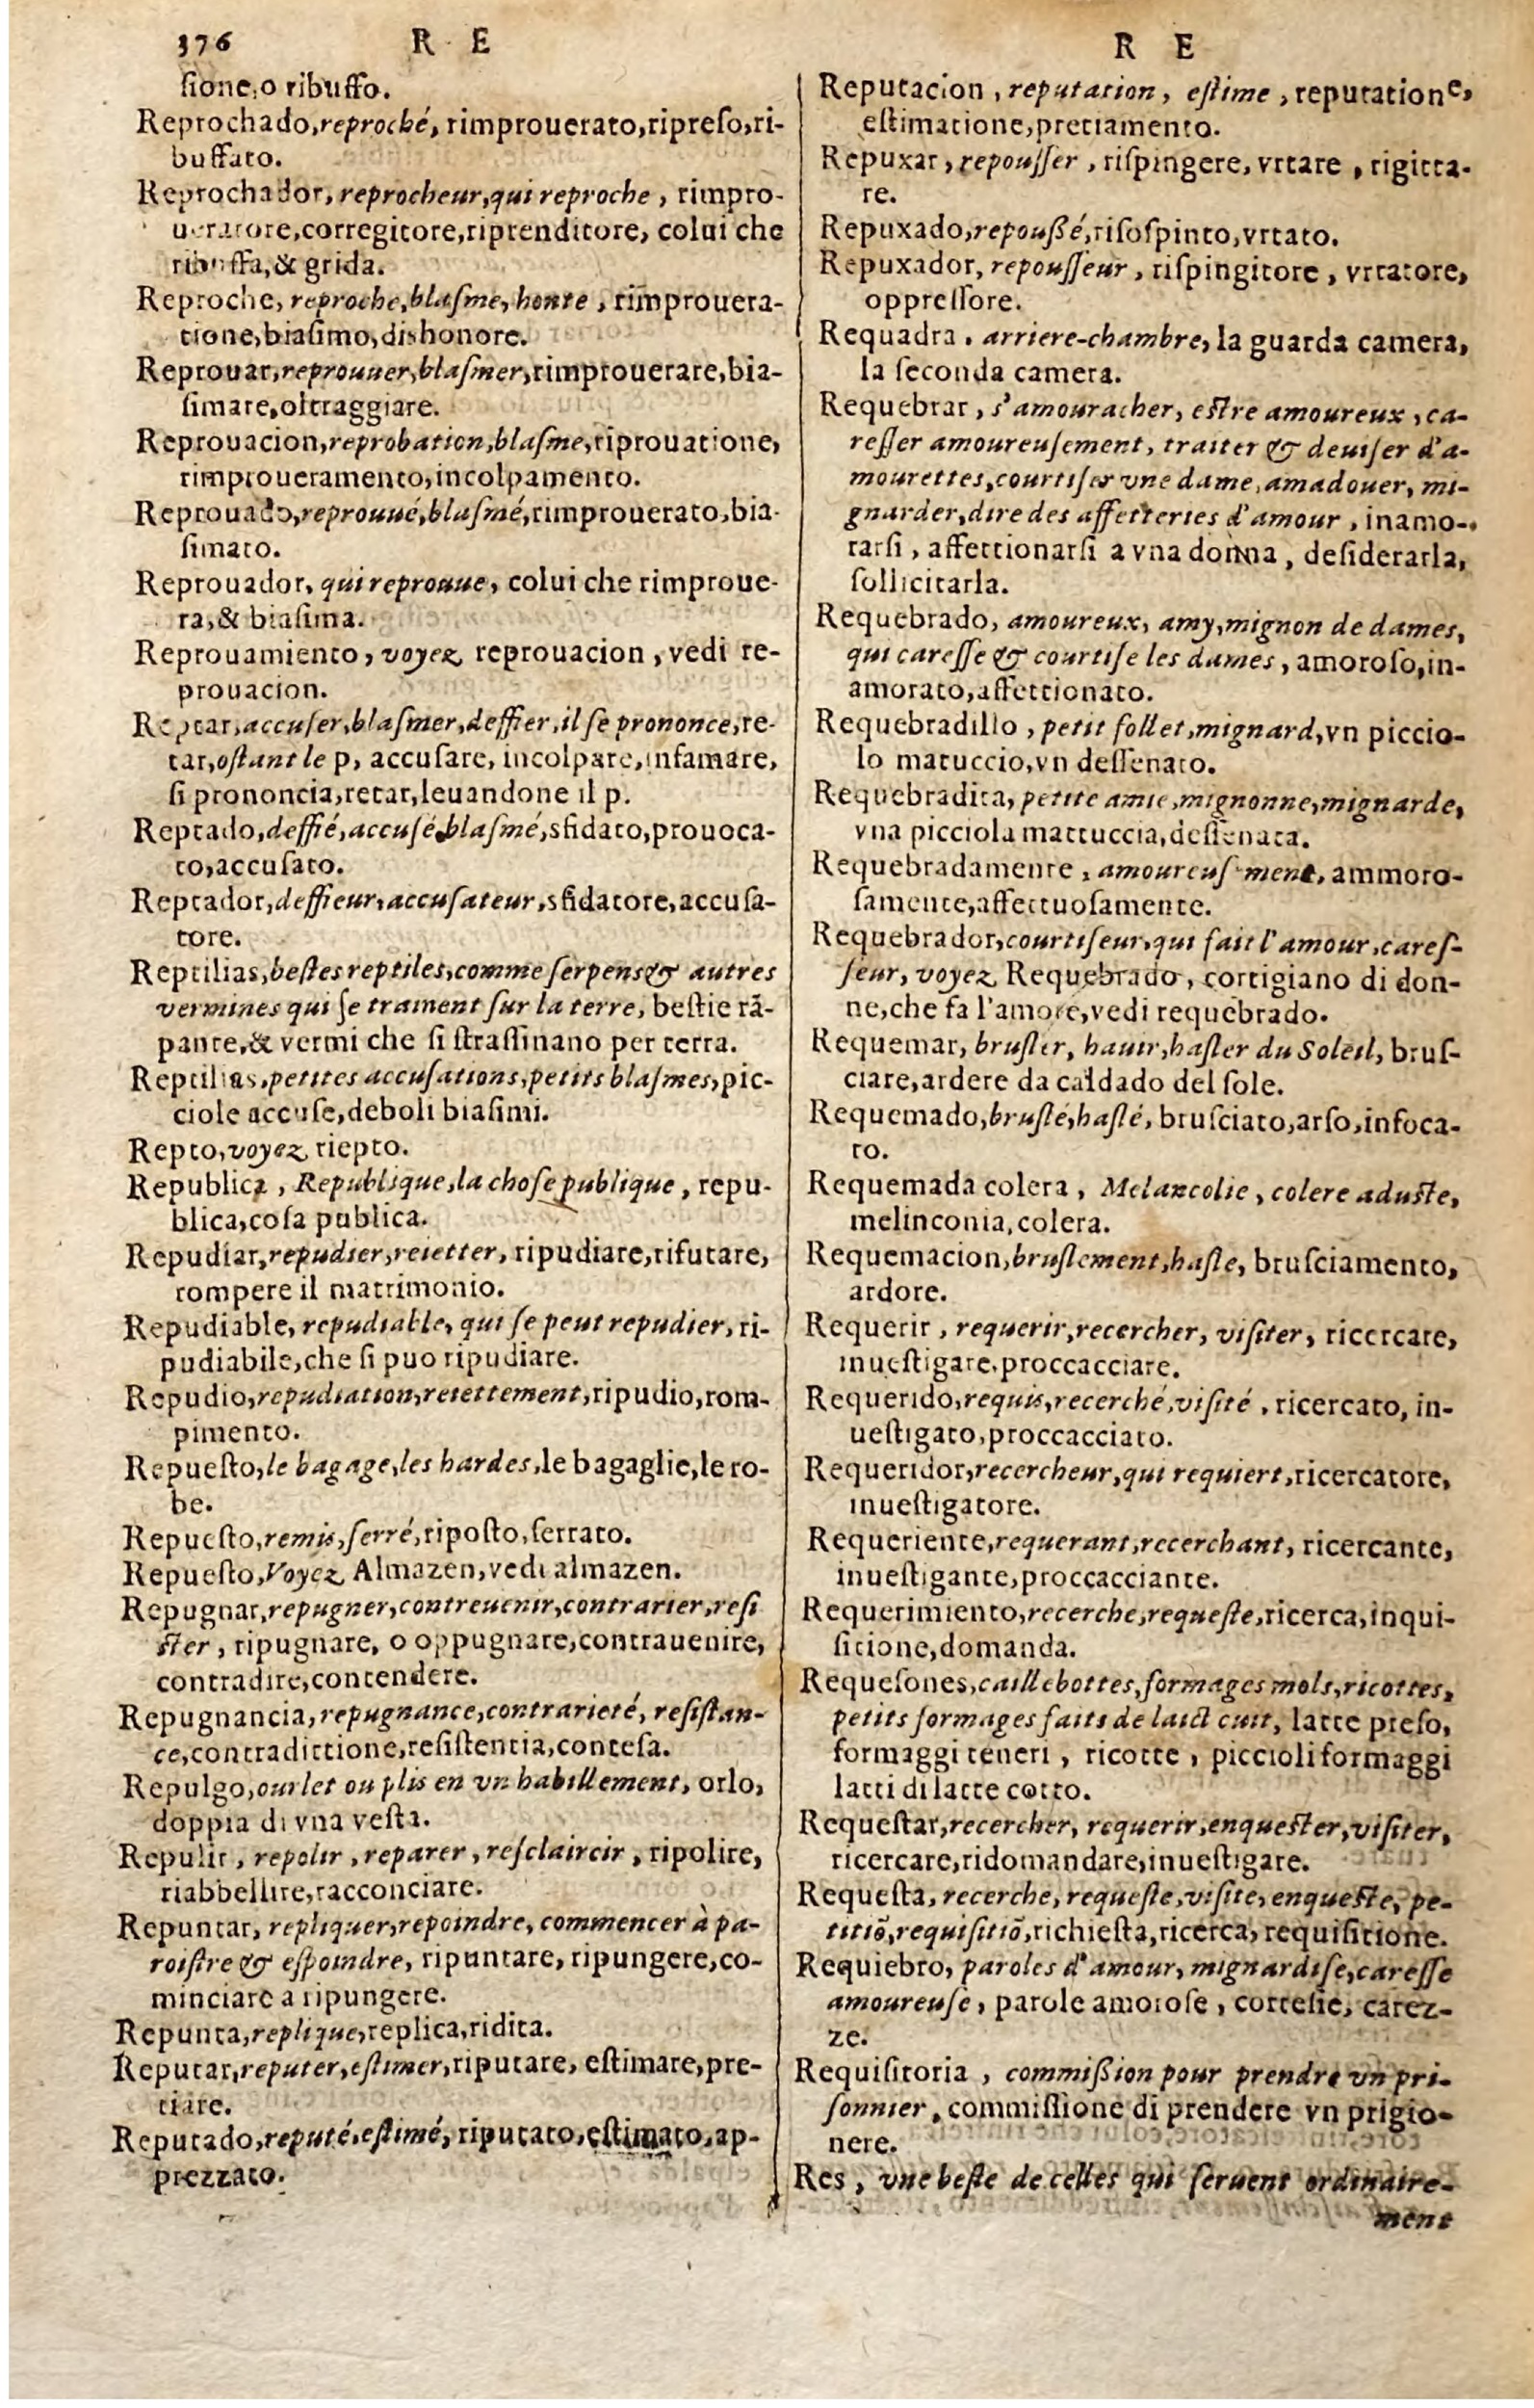 376 R E
ſione,o ribuffo.
Reprochado,reproché, rimprouerato,ripreſo,ri-
buffato.
Reprochador, reprocheur,qui reproche, rimpro-
ueratore,corregitore,riprenditore, colui che
ribuffa,& grida.
Reproche, reproche,blaſme, honte, rimprouera-
tione,biaſimo,dishonore.
Reprouar,reprouuer,blaſmer,rimprouerare,bia-
ſimare,oltraggiare.
Reprouacion,reprobation,blaſme,riprouatione,
rimproueramento,incolpamento.
Reprouado,reprouué,blaſmé,rimprouerato,bia-
ſimato.
Reprouador, qui reprouue, colui che rimproue-
ra,& biaſima.
Reprouamiento, voyez reprouacion, vedi re-
prouacion.
Reptar,accuſer,blaſmer,deffier,il ſe prononce,re-
tar,oſtant le p, accuſare, incolpare,infamare,
ſi prononcia,retar,leuandone il p.
Reptado,deffié,accuſé,blaſmé,sfidato,prouoca-
to,accuſato.
Reptador,deffieur,accuſateur,sfidatore,accuſa-
tore.
Reptilias,beſtes reptiles,comme ſerpens & autres
vermines qui ſe trament ſur la terre, beſtie rã-
pante,& vermi che ſi ſtraſſinano per terra.
Reptilias,petites accuſations,petits blaſmes,pic-
ciole accuſe,deboli biaſimi.
Repto,voyez riepto.
Republica, Republique,la choſe publique, repu-
blica,coſa publica.
Repudiar,repudier,reietter, ripudiare,rifutare,
rompere il matrimonio.
Repudiable, repudiable, qui ſe peut repudier, ri-
pudiabile,che ſi puo ripudiare.
Repudio,repudiation,reiettement,ripudio,rom-
pimento.
Repueſto,le bagage,les hardes,le bagaglie,le ro-
be.
Repueſto,remis,ſerré,ripoſto,ſerrato.
Repueſto,Voyez Almazen,vedi almazen.
Repugnar,repugner,contreuenir,contrarier,reſi
ſter, ripugnare, o oppugnare,contrauenire,
contradire,contendere.
Repugnancia,repugnance,contrarieté, reſiſtan-
ce,contradittione,reſiſtentia,conteſa.
Repulgo,ourlet ou plis en vn habillement, orlo,
doppia di vna veſta.
Repulir, repolir, reparer, reſclaircir, ripolire,
riabbellire,racconciare.
Repuntar, repliquer,repoindre, commencer à pa-
roiſtre & eſpoindre, ripuntare, ripungere,co-
minciare a ripungere.
Repunta,replique,replica,ridita.
Reputar,reputer,eſtimer,riputare, eſtimare,pre-
tiare.
Reputado,reputé,eſtimé, riputato,eſtimato,ap-
prezzato.
R E
Reputacion, reputation, eſtime, reputatione,
eſtimatione,pretiamento.
Repuxar, repouſſer, riſpingere, vrtare, rigitta-
re.
Repuxado,repoußé,riſoſpinto,vrtato.
Repuxador, repouſſeur, riſpingitore, vrtatore,
oppreſſore.
Requadra. arriere-chambre, la guarda camera,
la ſeconda camera.
Requebrar, s'amouracher, eſtre amoureux, ca-
reſſer amoureuſement, traiter & deuiſer d'a-
mourettes,courtiſer vne dame, amadouer, mi-
gnarder,dire des affetteries d'amour, inamo-
rarſi, affettionarſi a vna donna, deſiderarla,
ſollicitarla.
Requebrado, amoureux, amy,mignon de dames,
qui careſſe & courtiſe les dames, amoroſo,in-
amorato,affettionato.
Requebradillo, petit follet,mignard,vn piccio-
lo matuccio,vn deſſenato.
Requebradita, petite amie,mignonne,mignarde,
vna picciola mattuccia,deſſenata.
Requebradamente, amoureuſement, ammoro-
ſamente,affettuoſamente.
Requebrador,courtiſeur,qui fait l'amour,careſ-
ſeur, voyez Requebrado, cortigiano di don-
ne,che fa l'amore,vedi requebrado.
Requemar, bruſler, hauir,haſler du Soleil, bruſ-
ciare,ardere da caldado del ſole.
Requemado,bruſlé,haſlé, bruſciato,arſo,infoca-
to.
Requemada colera, Melancolie, colere aduſte,
melinconia,colera.
Requemacion,bruſlement,haſle, bruſciamento,
ardore.
Requerir, requerir,recercher, viſiter, ricercare,
inueſtigare,proccacciare.
Requerido,requis,recerché,viſité, ricercato, in-
ueſtigato,proccacciato.
Requeridor,recercheur,qui requiert,ricercatore,
inueſtigatore.
Requeriente,requerant,recerchant, ricercante,
inueſtigante,proccacciante.
Requerimiento,recerche,requeſte,ricerca,inqui-
ſitione,domanda.
Requeſones,caillebottes,formages mols,ricottes,
petits formages faits de laict cuit, latte preſo,
formaggi teneri, ricotte, piccioli formaggi
latti di latte cotto.
Requeſtar,recercher, requerir,enqueſter,viſiter,
ricercare,ridomandare,inueſtigare.
Requeſta, recerche, requeſte,viſite, enqueſte, pe-
titiõ,requiſitiõ,richieſta,ricerca, requiſitione.
Requiebro, paroles d'amour, mignardiſe,careſſe
amoureuſe, parole amoroſe, corteſie, carez-
ze.
Requiſitoria, commißion pour prendre vn pri-
ſonnier, commiſſione di prendere vn prigio-
nere.
Res, vne beſte de celles qui ſeruent ordinaire-
ment